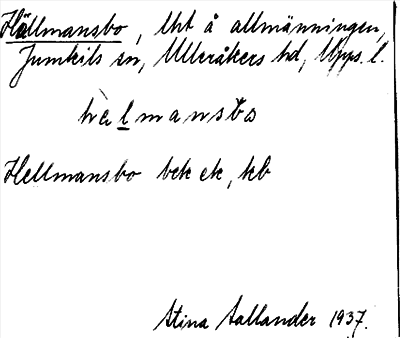 Hällmansbo, lht å allmänningen,
Jumkils sn, Ulleråkers hd, Upps. l.
hèlmansbo
Hellmansbo bek ek, kb
Stina Sallander 1937.